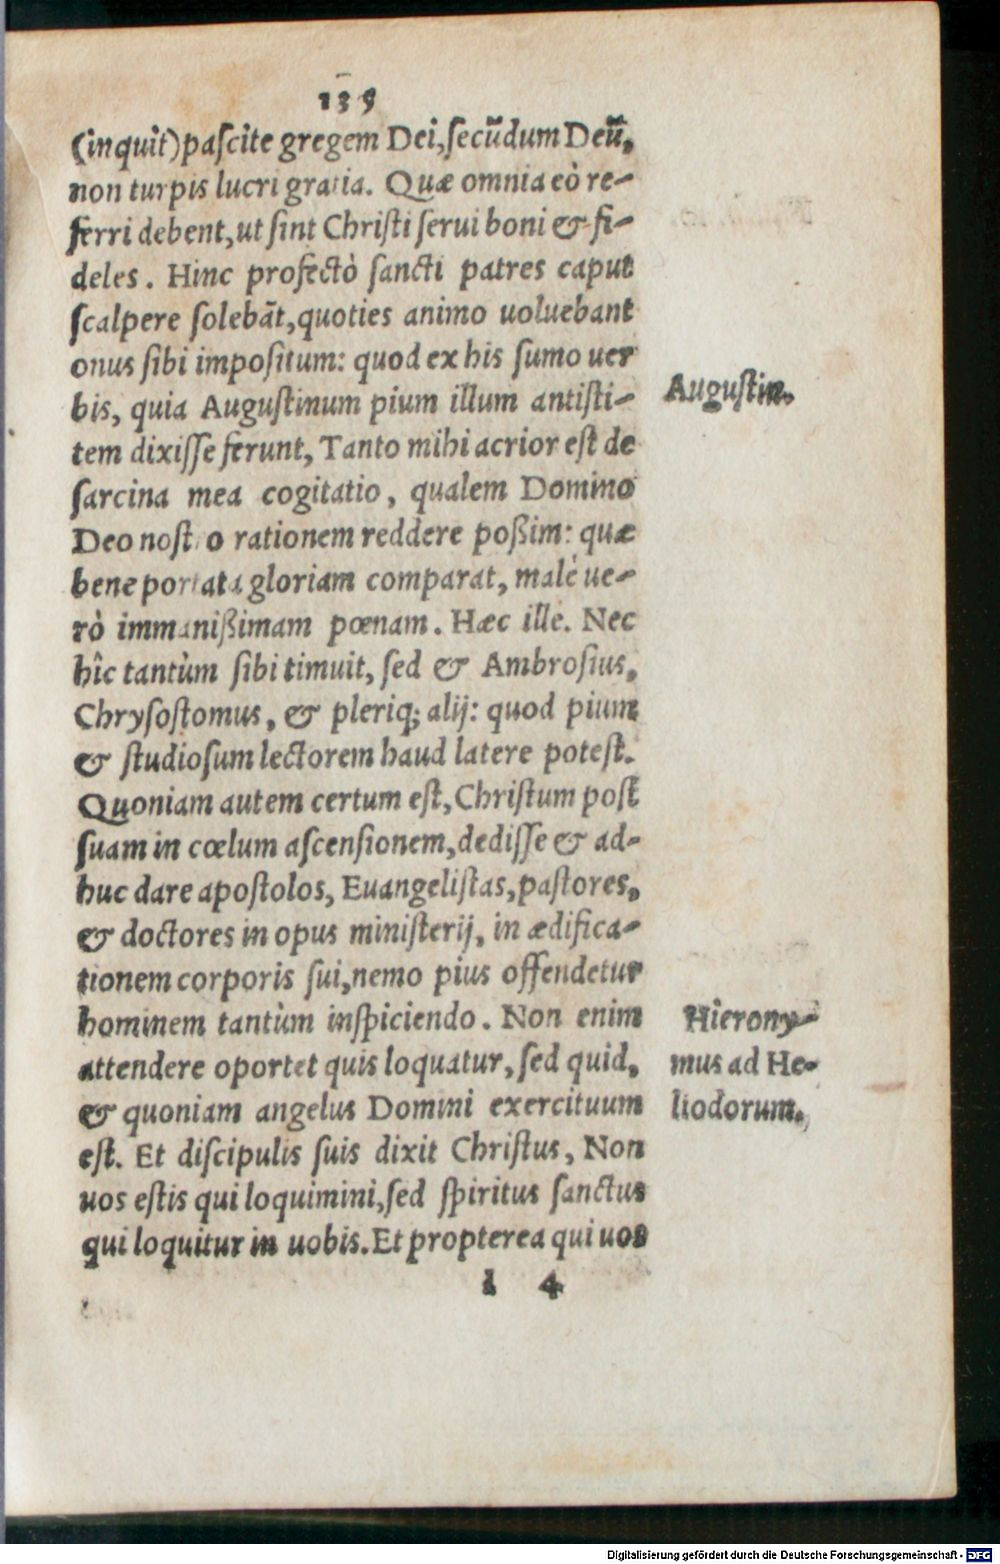 135
(inquit) pascite gregem Dei, secūdum Deū,
non turpis lucri gratia. Quæ omnia eò re-
ferri debent, ut sint Christi serui boni & fi-
deles. Hinc profectò sancti patres caput
scalpere solebāt, quoties animo uoluebant
onus sibi impositum: quod ex his sumo uer
bis, quia Augustinum pium illum antisti-
tem dixisse ferunt, Tanto mihi acrior est de
sarcina mea cogitatio, qualem Domino
Deo nostro rationem reddere poßim: quæ
bene portata gloriam comparat, malè ue-
rò immanißimam pœnam. Hæc ille. Nec
hîc tantùm sibi timuit, sed & Ambrosius,
Chrysostomus, & pleriq; alij: quod pium
& studiosum lectorem haud latere potest.
Quoniam autem certum est, Christum post
suam in cœlum ascensionem, dedisse & ad-
huc dare apostolos, Euangelistas, pastores,
& doctores in opus ministerij, in ædifica-
tionem corporis sui, nemo pius offendetur
hominem tantùm inspiciendo. Non enim
attendere oportet quis loquatur, sed quid,
& quoniam angelus Domini exercituum
est. Et discipulis suis dixit Christus, Non
uos estis qui loquimini, sed spiritus sanctus
qui loquitur in uobis. Et propterea qui uos
l 4
Augustin.
Hierony-
mus ad He-
liodorum.
Digitalisierung gefördert durch die Deutsche Forschungsgemeinschaft - DFG